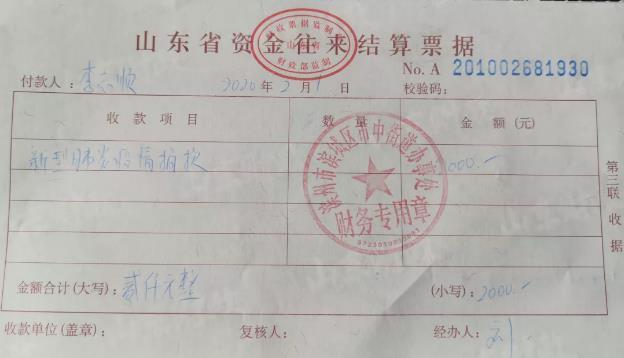 山东省资金往来结算票据
财政票据监制
山东省
财政部监制
No. A 201002681930
付款人：李志顺 2020年2月1日 校验码：
收款项目 数量 金额（元）
新型肺炎疫情捐款 2000.-
滨州市滨城区市中街道办事处
财务专用章
第三联 收据
金额合计（大写）：贰仟元整 （小写）：2000.-
收款单位（盖章）： 复核人： 经办人：刘